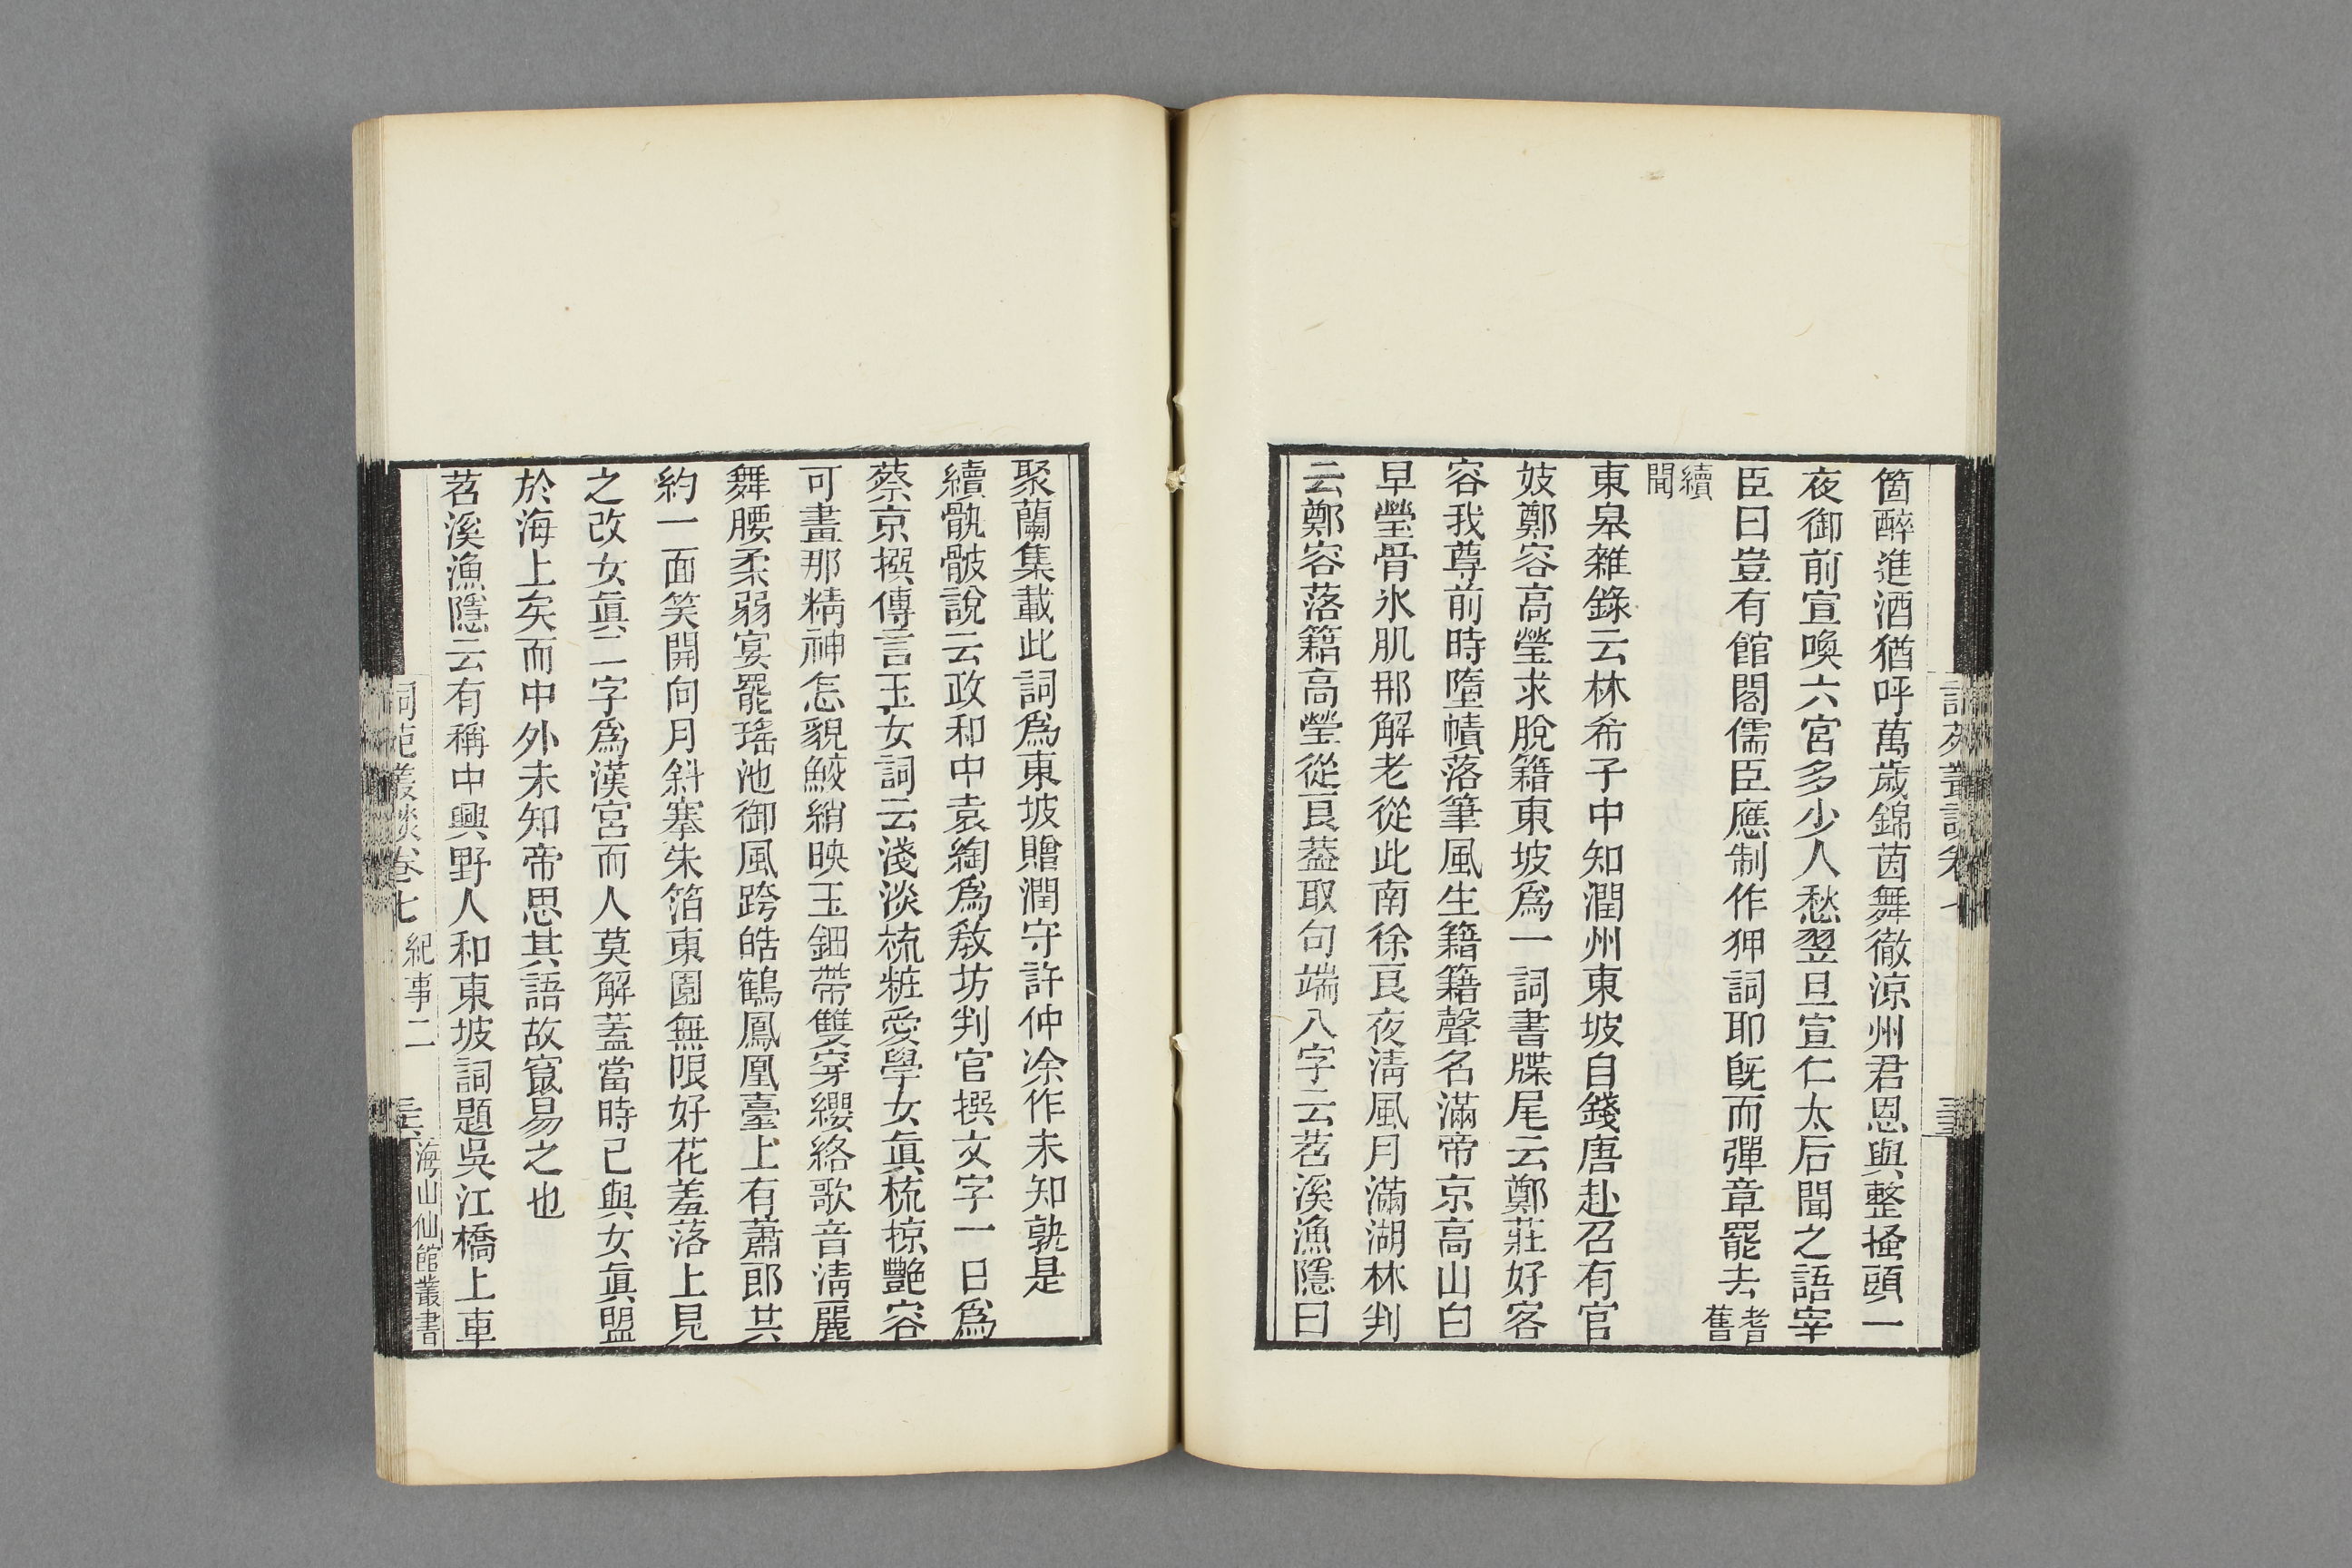 箇醉進酒猶呼萬歲錦茵舞徹涼州君恩與整搔頭一
夜御前宣喚六宮多少人愁翌旦宣仁太后聞之語宰
臣曰豈有館閣儒臣應制作狎詞耶旣而彈章罷去耆舊
續聞
東皋雜錄云林希子中知潤州東坡自錢唐赴召有官
妓鄭容高瑩求脫籍東坡爲一詞書牒尾云鄭莊好客
容我尊前時墮幘落筆風生籍籍聲名滿帝京高山白
早瑩骨氷肌那解老從此南徐良夜淸風月滿湖林判
云鄭容落籍高瑩從良葢取句端八字云苕溪漁隱曰
聚蘭集載此詞爲東坡贈潤守許仲凃作未知孰是
續骫骳說云政和中袁綯爲敎坊判官撰文字一日爲
蔡京撰傳言玉女詞云淺淡梳粧愛學女眞梳掠艷容
可畫那精神怎貌鮫綃映玉鈿帶雙穿纓絡歌音淸麗
舞腰柔弱宴罷瑤池御風跨皓鶴鳳凰臺上有蕭郎共
約一面笑開向月斜搴朱箔東園無限好花羞落上見
之改女眞二字爲漢宮而人莫解蓋當時已與女眞盟
於海上矣而中外未知帝思其語故竄易之也
苕溪漁隱云有稱中興野人和東坡詞題吳江橋上車
詞苑叢談卷七 紀事二 海山仙館叢書